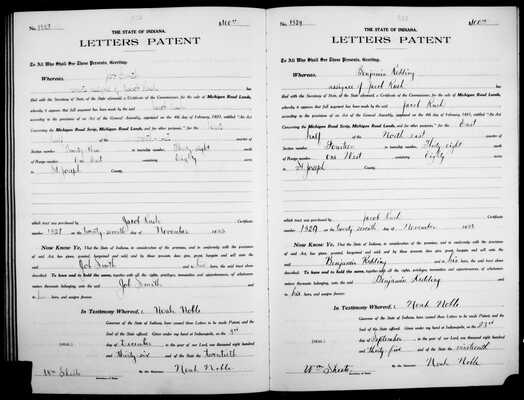 No. 1928
THE STATE OF INDIANA.
LETTERS PATENT
To All Who Shall See These Presents, Greeting:
Whereas, Job Smith
assignee of Jacob Rush has
filed with the Secretary of State, of the State aforesaid, a Certificate of the Commissioners for the sale of Michigan Road Lands,
whereby, it appears that full payment has been made by the said
according to the provisions of an Act of the General Assembly, approved on the 4th day of February, 1831, entitled "An Act
Concerning the Michigan Road Scrip, Michigan Road Lands, and for other purposes," for the
quarter of
Section number Twenty Nine in Township number Thirty eight of
of Range number One East containing Eighty acres
in St Joseph County.
which tract was purchased by Jacob Rush, Certificate
number 1928 on the Twenty seventh day of November 1833
Now Know Ye, That the State of Indiana, in consideration of the premises, and in conformity with the provisions
of said Act, has given, granted, bargained and sold, and by these presents does give, grant, bargain and sell unto the
said Job Smith and to his heirs, the said tract above
described. To have and to hold the same, together with all the rights, privileges, immunities and appurtenances, of whatsoever
nature thereunto belonging, unto the said Job Smith, and
to his heirs, and assigns forever.
In Testimony Whereof, I Noah Noble
Governor of the State of Indiana, have caused these Letters to be made Patent, and the
Seal of the State affixed. Given under my hand at Indianapolis, on the 3rd
[SEAL] day of December in the year of our Lord, one thousand eight hundred
and thirty six and of the State the twentieth
Wm Sheets
Secretary of State.
By the Governor: Noah Noble
No. 1929
THE STATE OF INDIANA.
LETTERS PATENT
To All Who Shall See These Presents, Greeting:
Whereas, Benjamin Redding
assignee of Jacob Rush has
filed with the Secretary of State, of the State aforesaid, a Certificate of the Commissioners for the sale of Michigan Road Lands,
whereby, it appears that full payment has been made by the said Jacob Rush
according to the provisions of an Act of the General Assembly, approved on the 4th day of February, 1831, entitled "An Act
Concerning the Michigan Road Scrip, Michigan Road Lands, and for other purposes," for the East
half of the North east quarter of
Section number Fourteen in Township number Thirty eight
of Range number One West containing Eighty acres
in St Joseph County.
which tract was purchased by Jacob Rush Certificate
number 1929 on the Twenty seventh day of November 1833
Now Know Ye, That the State of Indiana, in consideration of the premises, and in conformity with the provisions
of said Act, has given, granted, bargained and sold, and by these presents does give, grant, bargain and sell unto the
said Benjamin Redding and to his heirs, the said tract above
described. To have and to hold the same, together with all the rights, privileges, immunities and appurtenances, of whatsoever
nature thereunto belonging, unto the said Benjamin Redding and
to his heirs, and assigns forever.
In Testimony Whereof, I Noah Noble
Governor of the State of Indiana, have caused these Letters to be made Patent, and the
Seal of the State affixed. Given under my hand at Indianapolis, on the 23rd
[SEAL] day of September in the year of our Lord, one thousand eight hundred
and thirty five and of the State the nineteenth
Wm Sheets
Secretary of State.
By the Governor: Noah Noble